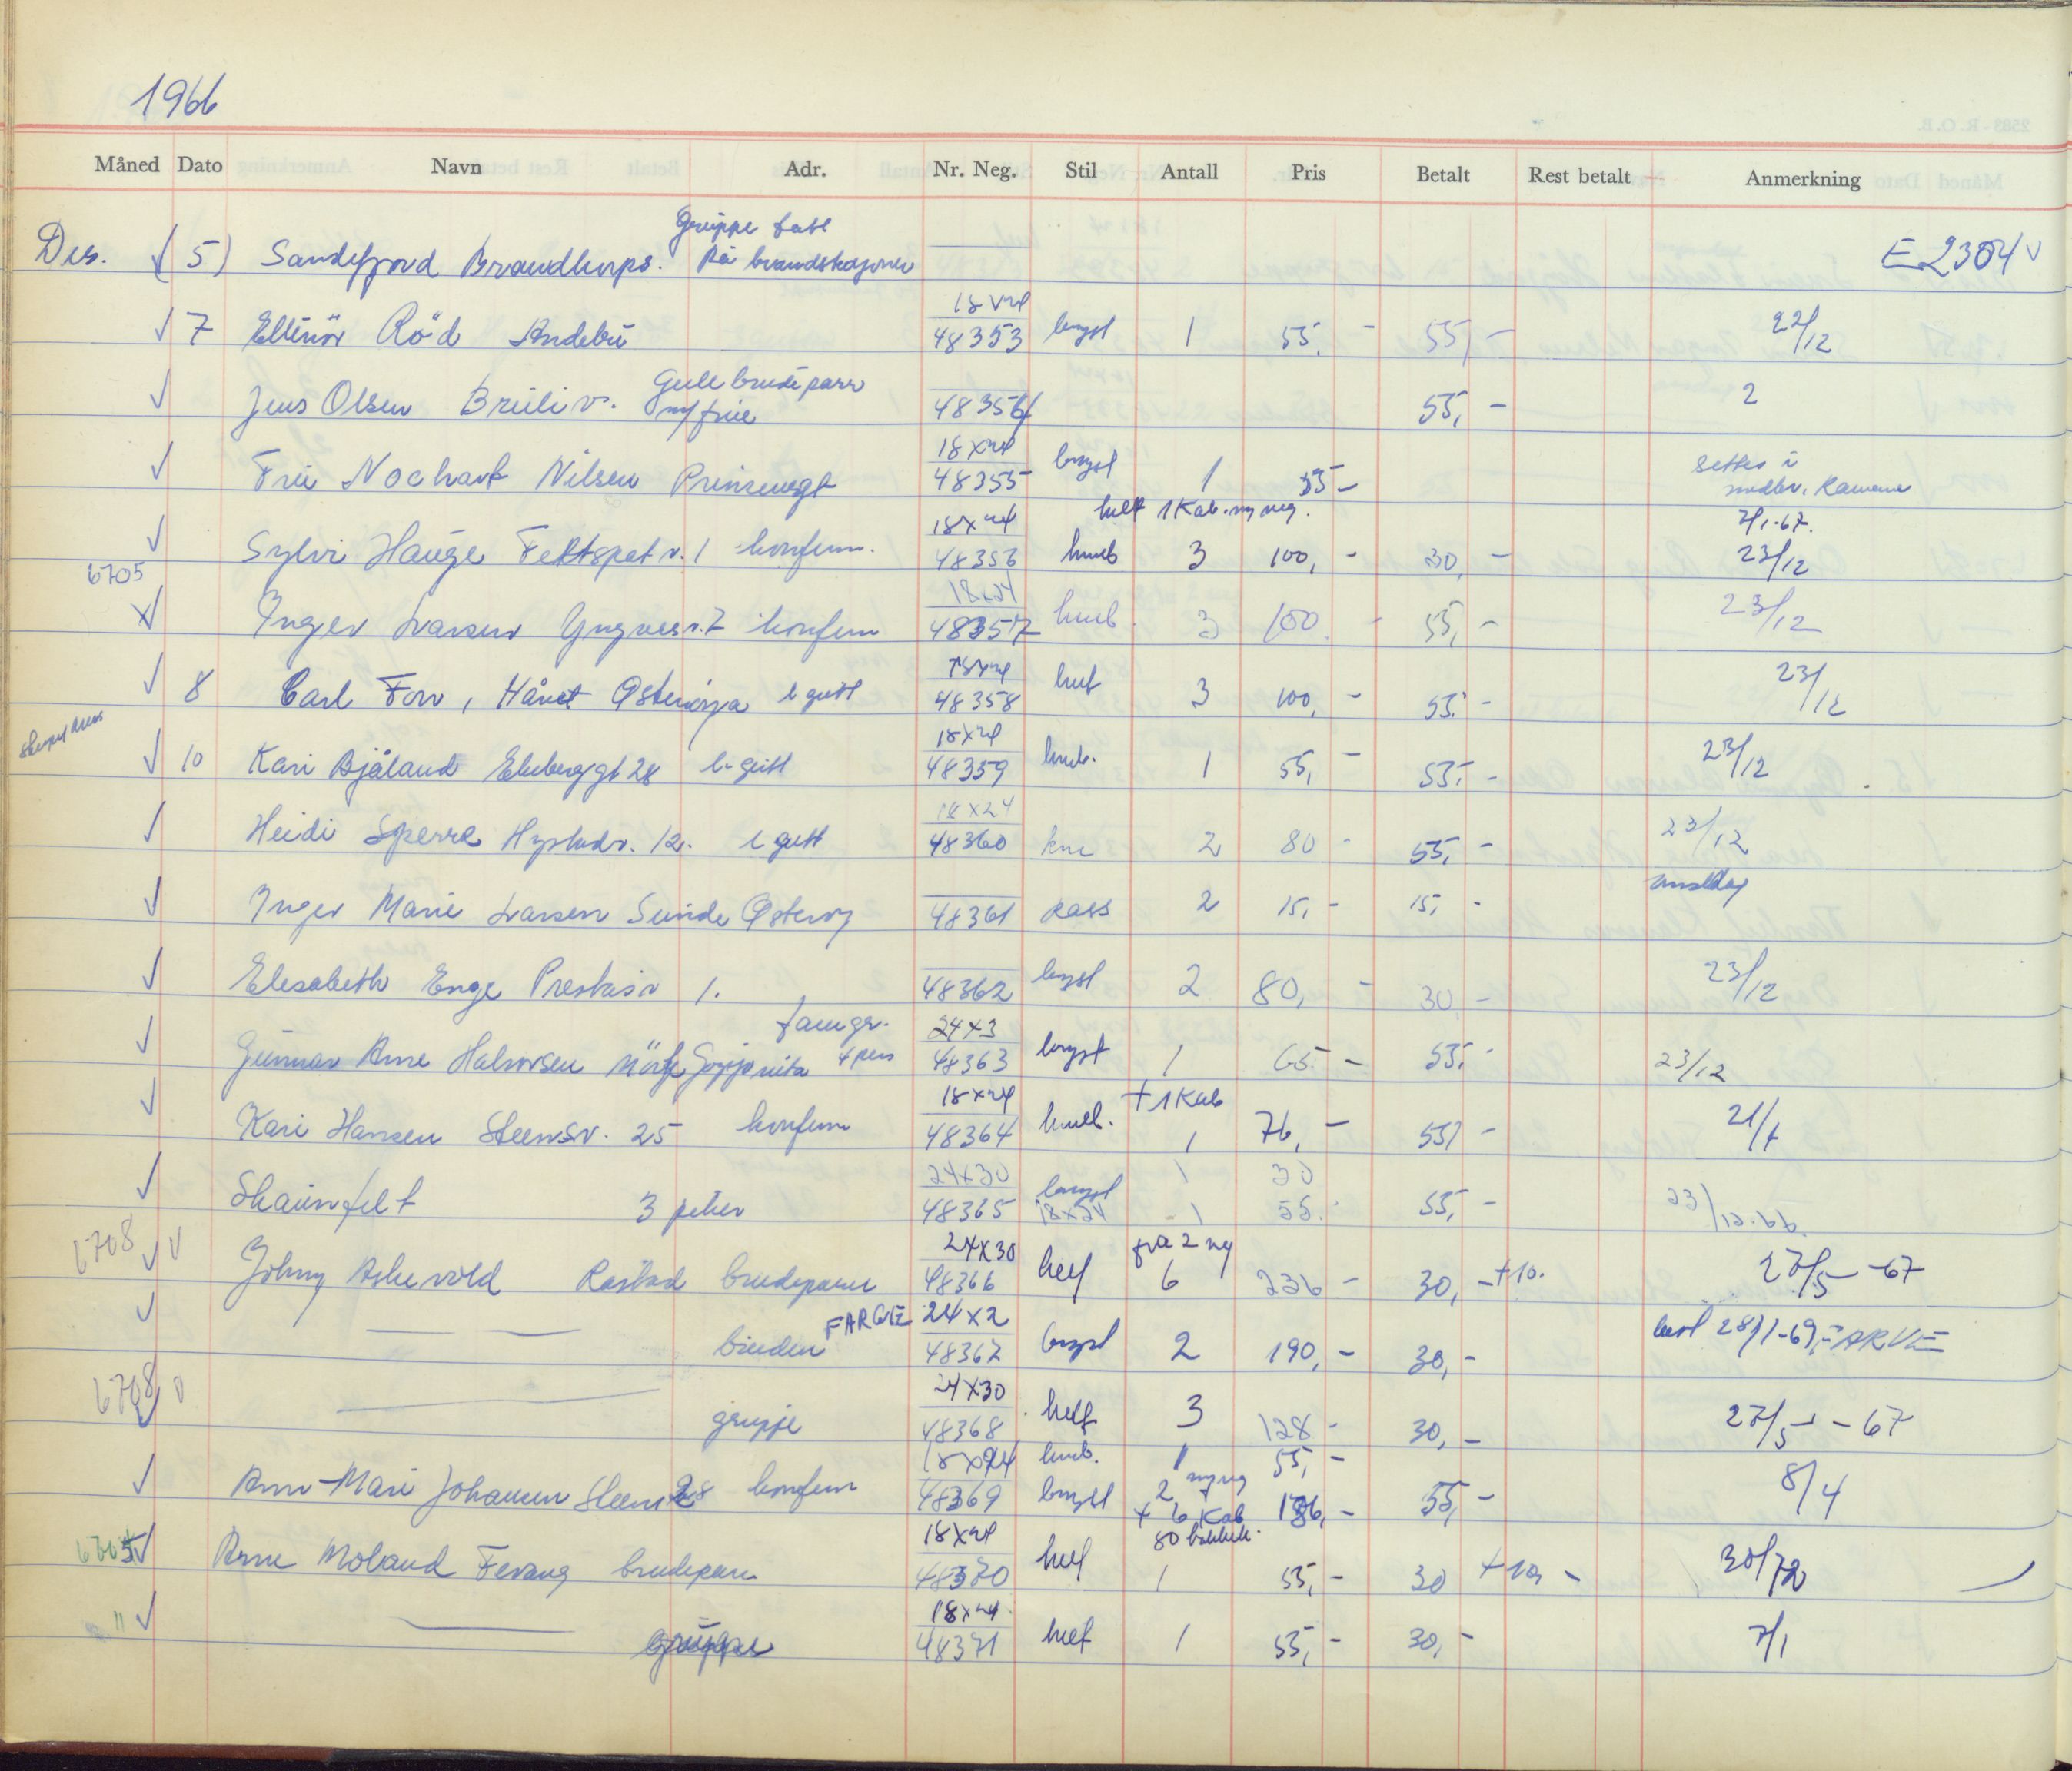 1966
Måned Dato Navn Adr. Nr. Neg. Stil Antall Pris Betalt Rest betalt Anmerkning
Gruppe tatt
Des. √ (5) Sandefjord Brandkorps. På brandstasjonen E2304 √
18x24 22/12
√ 7 Ellinör Röd Andebu 48353 bryst 1 55,- 55,-
Gull brudepar 2
√ Jens Olsen m/frue 48354 55,-
18x24 bryst settes i
√ Fru Nilsen Prinsensgt 48355 1 55- Ramme
18x24 helf 1 Kab. ny neg. 7/1-67.
√ Sylvi Hauge Feltspat v. 1 konfirm. 48356 kneb 3 100,- 30,- 23/12
6705 18x24 23/12
√ Inger Larsen Yngvesv. 7 konfirm 48357 kneb. 3 100.- 55,-
18x24 23/12
√ 8 Carl Forr, Hånet Østeröya l gutt 48358 3 100,- 55.-
18x24 23/12
√ 10 Kari Bjåland Ekeberggt 28 l. gutt 48359 kneb. 1 55,- 55,-
18x24 23/12
√ Heidi Sperre 12. l gutt 48360 kne 2 80- 55,-
onsdag
√ Inger Marie Larsen Sunde Østerøy 48361 pass 2 15,- 15,-
23/12
√ Elesabeth Enge 1. 48362 bryst 2 80,- 30,-
fam gr. 24x3
√ Gunnar Arne Halvorsen 4 pers 48363 bryst 1 65- 55,- 23/12
18x24 +1 Kab 21/4
√ Kari Hansen Steensv. 25 konfirm 48364 kneb. 1 76,- 55,-
24x30 bryst 1 30
√ Skaunfelt 3 piker 48365 18x24 1 55. 55,- 23/12.66
6708 24x30 fra 2 ng
√ √ Johny Askevold Råstad brudeparet 48366 helf 6 236- 30,- +10. 27/5-67
FARGE 24x2 best 28/1-69, FARVE
√ bruden 48367 bryst 2 190,- 30,-
6708 24x30
√ gruppe 48368 helf 3 128- 30,- 27/5-67
18x24 kneb. 1 55,-
√ Ann-Mari Johansen Steensv 28 konfirm 48369 bryst 2 ny ng 186,- 55,- 8/4
18x24 + 6 Kab 80 takkek.
√ Arne Moland Fevang brudepar 48370 helf 1 55,- 30 +10,- 30/12
18x24
" √ gruppe 48371 helf 1 55,- 30,- 7/1